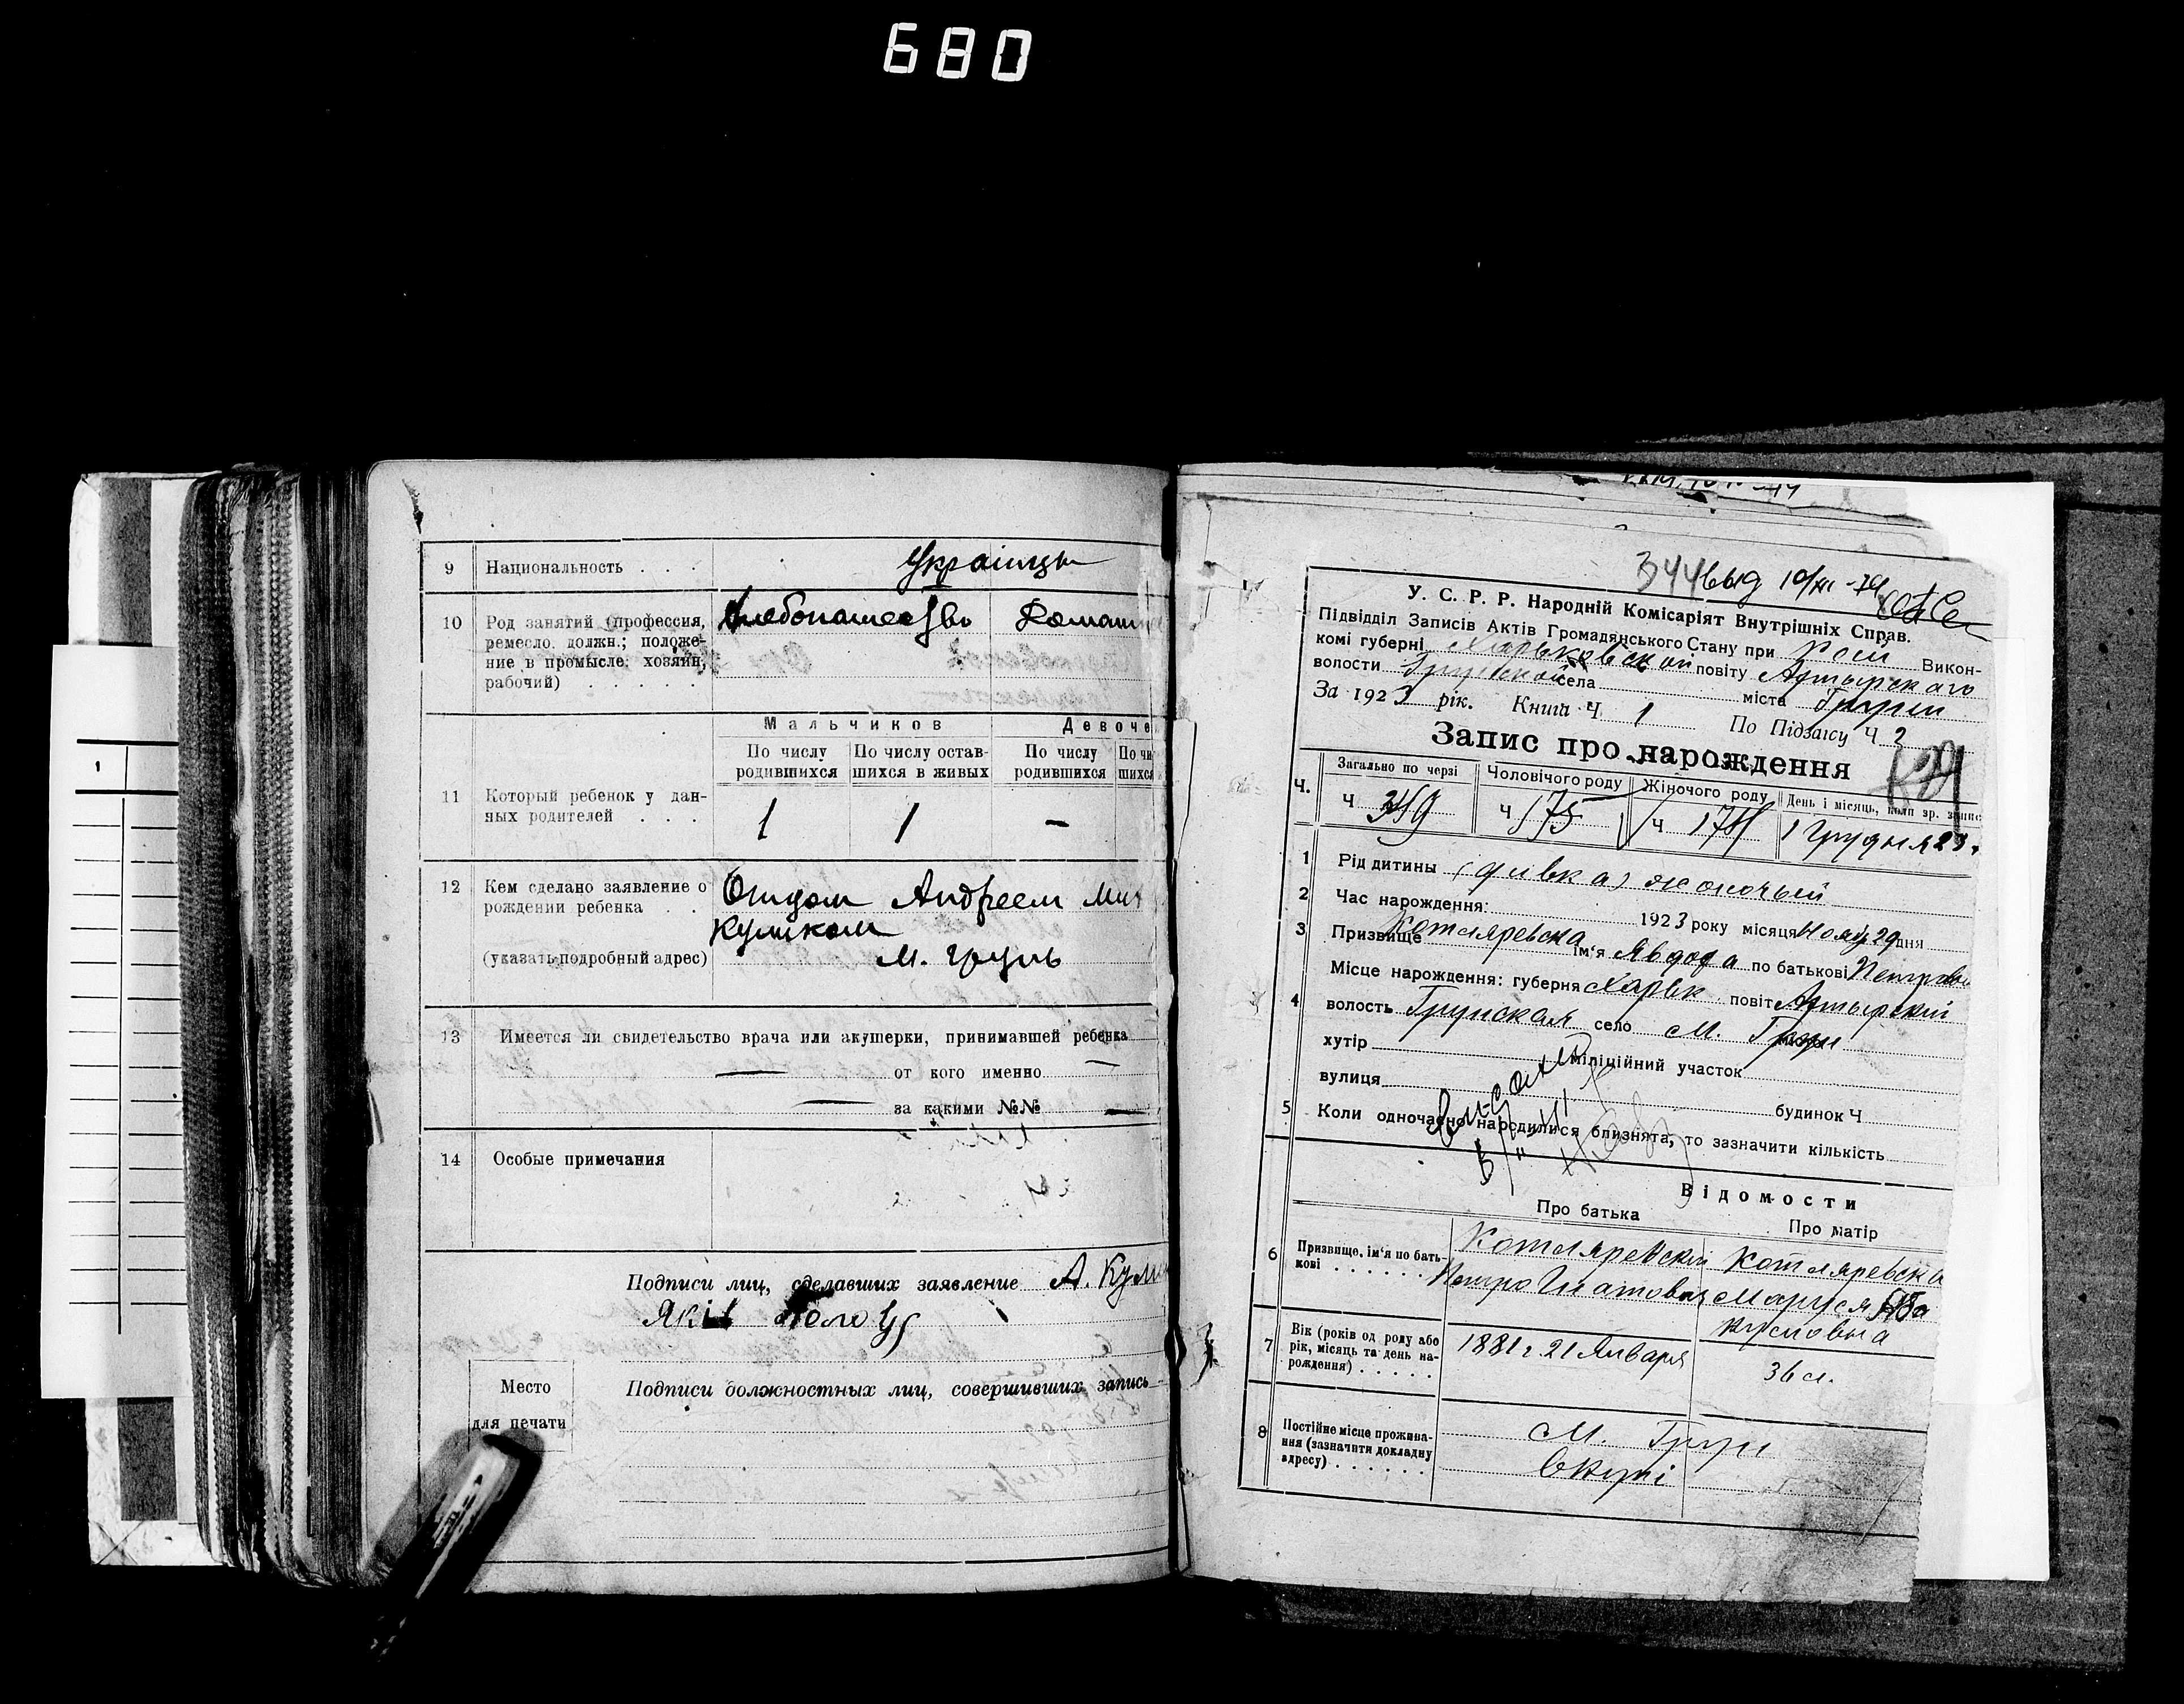 680
9 Национальность . . . Українцы
10 Род занятий (профессия, ремесло, должн.; положение в промысле: хозяин, рабочий) . . . . .
Хлебопашество Домашн
Мальчиков Девоче
По числу родившихся По числу оставшихся в живых По числу родившихся По чи шихся
11 Который ребенок у данных родителей . . . 1 1 —
12 Кем сделано заявление о рождении ребенка . . Отцом Андреем Мит
Куликом
(указать подробный адрес) м. Грунь
13 Имеется ли свидетельство врача или акушерки, принимавшей ребенка
— от кого именно —
— за какими №№ —
14 Особые примечания
Подписи лиц, сделавших заявление А. Кули
Якiв
Подписи должностных лиц, совершивших запись
Место
для печати
1
344 выд 10/XII-74
У. С. Р. Р. Народній Комісаріят Внутрішніх Справ.
Підвідділ Записів Актів Громадянського Стану при Викон-
комі губерні Харьковской повіту Ахтырскаго
волости Грунской села міста Груни
За 1923 рік. Книга Ч. 1 По Підзагсу Ч 2
Запис про народження
Ч. Загально по черзі Чоловічого роду Жіночого роду День і місяць, коли зр. запис
Ч 349 Ч 175 Ч 174 1 Грудня 23
1 Рід дитины (дивка) жоночый
2 Час нарождення: 1923 року місяця Нояб 29 дня
3 Призвище Котляревска ім'я Явдоха по батькові Петровн
4 Місце нарождення: губерня Харьк повіт Ахтырский
волость Грунская село м. Грунь
хутір міліційний участок
вулиця будинок Ч
5 Коли одночасно народилися близнята, то зазначити кількість
Відомости
Про батька Про матір
6 Призвище, ім'я по батькові . . . . . .
Котляревский Петро Гнатович
Котляревска Маруся
7 Вік (років од роду або рік, місяць та день нарождення) . . . . . 1881 г. 21 Января 36 л.
8 Постійне місце проживання (зазначити докладну адресу) . . . . . .
м. Груни
вкупі